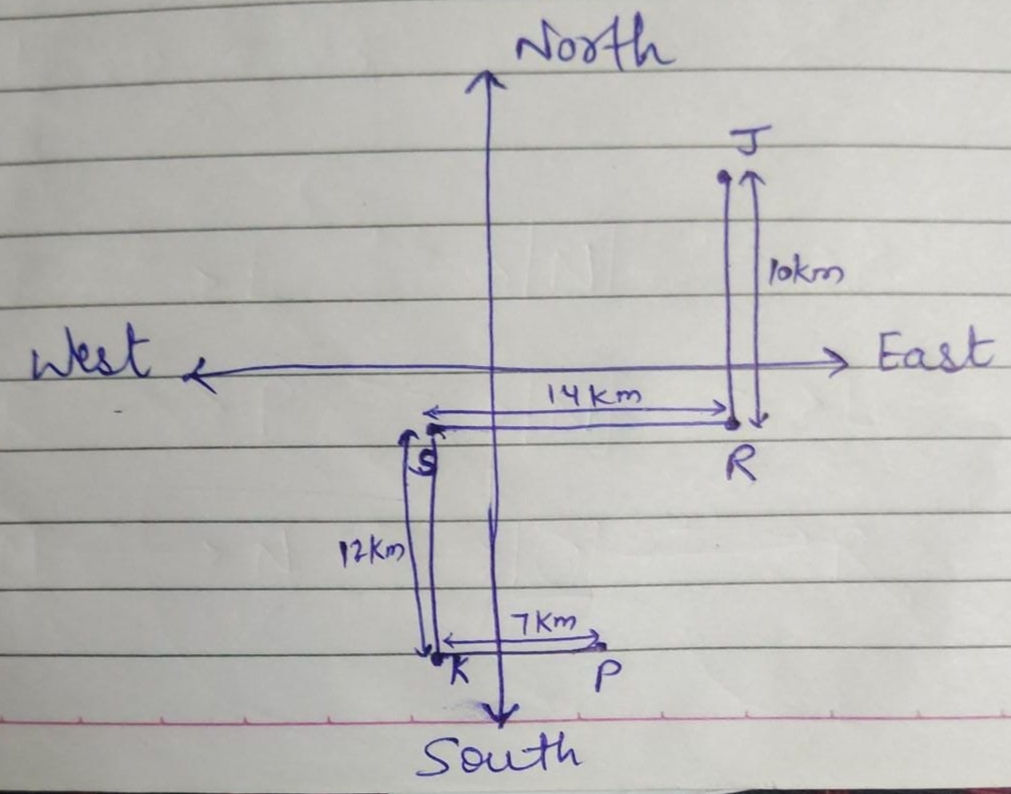 North
J
10km
West
East
14km
S
R
12km
7km
K
P
South